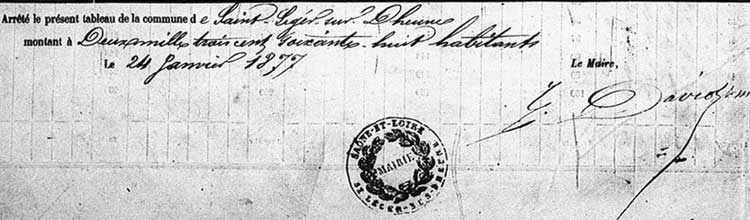 Arrêté le présent tableau de la commune de Saint-Léger-sur-Dheune
montant à Deux mille trois cent soixante-huit habitants
Le 24 Janvier 1877
Le Maire,
David
SAÔNE-ET-LOIRE
MAIRIE
ST LEGER-SUR-DHEUNE